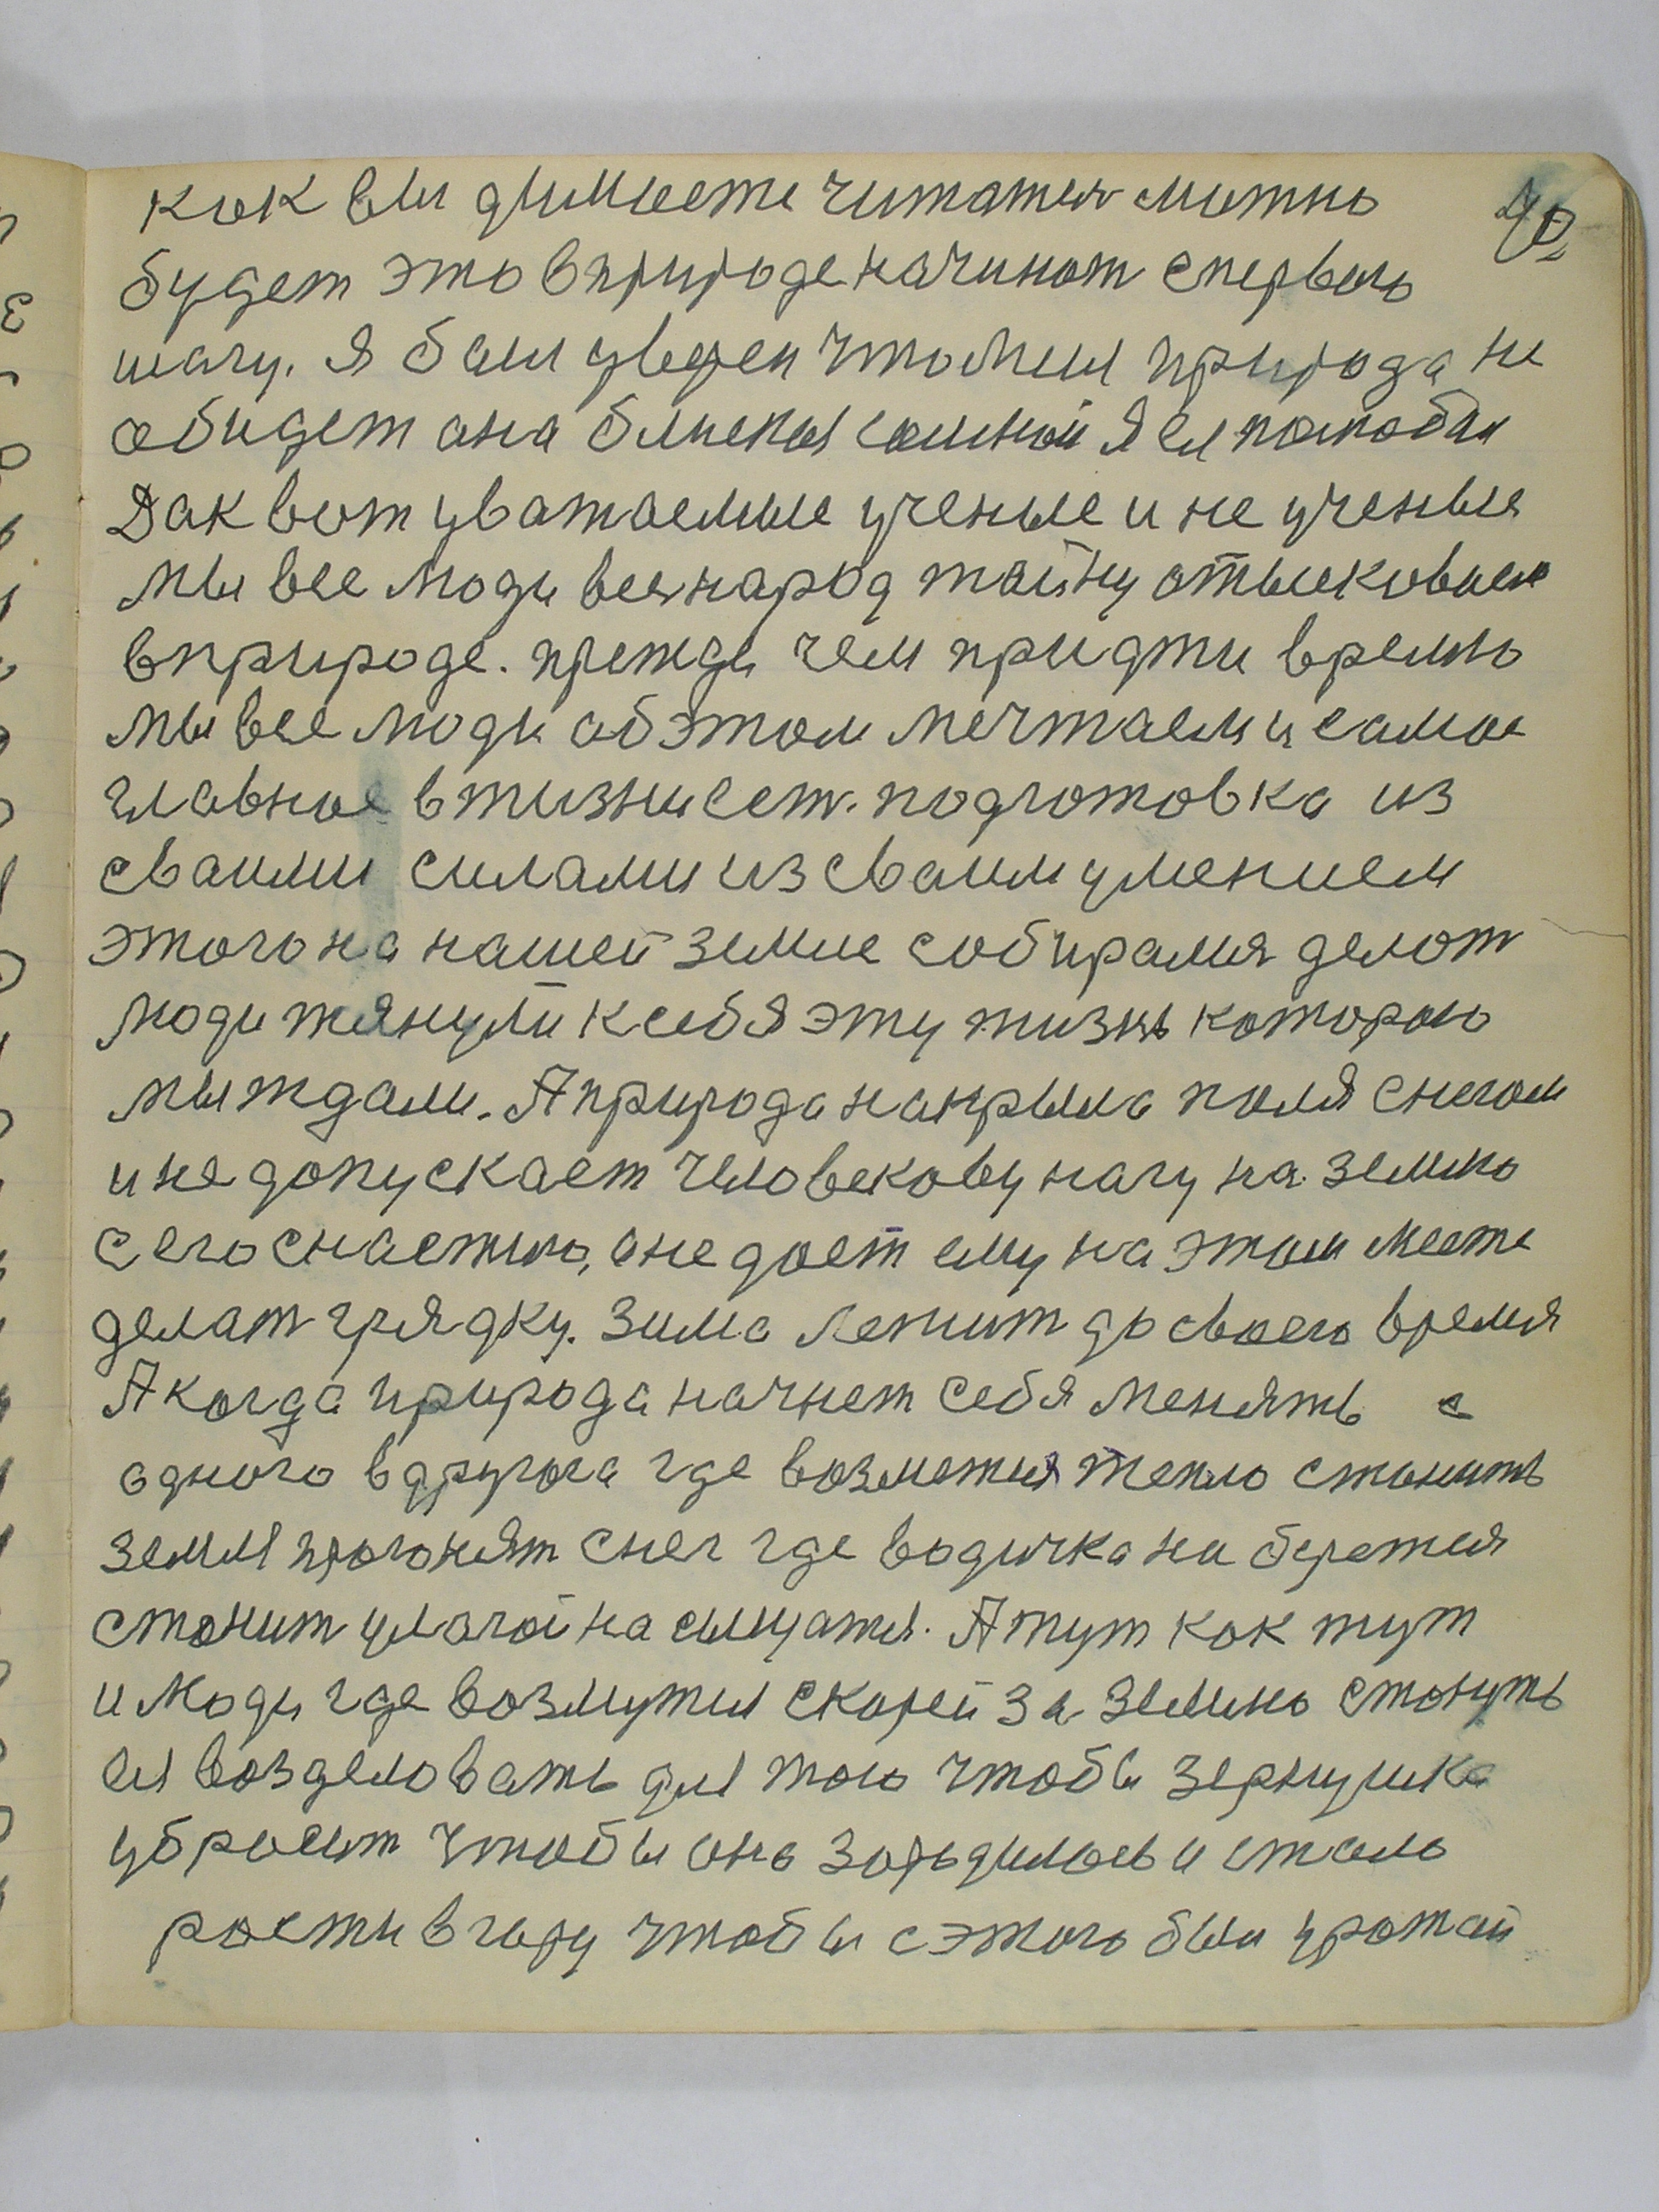 как вы думаете читатель можно 40
будет это в природе начинат с первого
шагу. Я был уверен что меня природа не
обидет она близкая самной Я ея полюбил
Дак вот уважаемые ученые и не ученые
мы все люди весь народ тайну отыскиваем
в природе. прежде чем придти время
мы все люди об этом мечтаем и самое
главное в жизни есть. подготовка из
сваими силами из сваим умением
этого на нашей земле собирался делат
люди тянули к себя эту жизнь которою
мы ждали. А природа накрыла поля снегом
и не допускает человекову нагу на землю
с его снастью, а не дает ему на этом месте
делат грядку. Зима лежит до своего время
А когда природа начнет себя менять с
одного в другога где возмется тепло станить
земля прогонят снег где водичка не бережется
станит улагой насыщатся. А тут как тут
и люди где возмутся скорей за землю стануть
ея возделовать для того чтобы зернушка
убросит чтобы оно зародилось и стало
рости в гару чтобы с этого был урожай